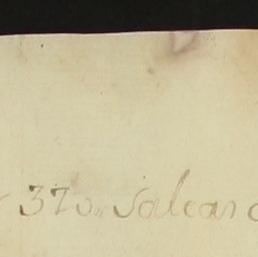 370,, Salcan